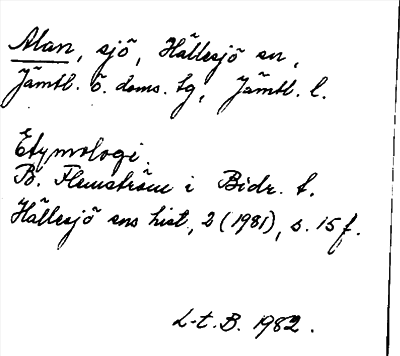 Alan, sjö, Hällesjö sn,
Jämtl. ö. doms. tg, Jämtl. l.
Etymologi.
B. Flemström i Bidr. t.
Hällesjö sns hist., 2 (1981), s. 15 f.
L-t. B. 1982.